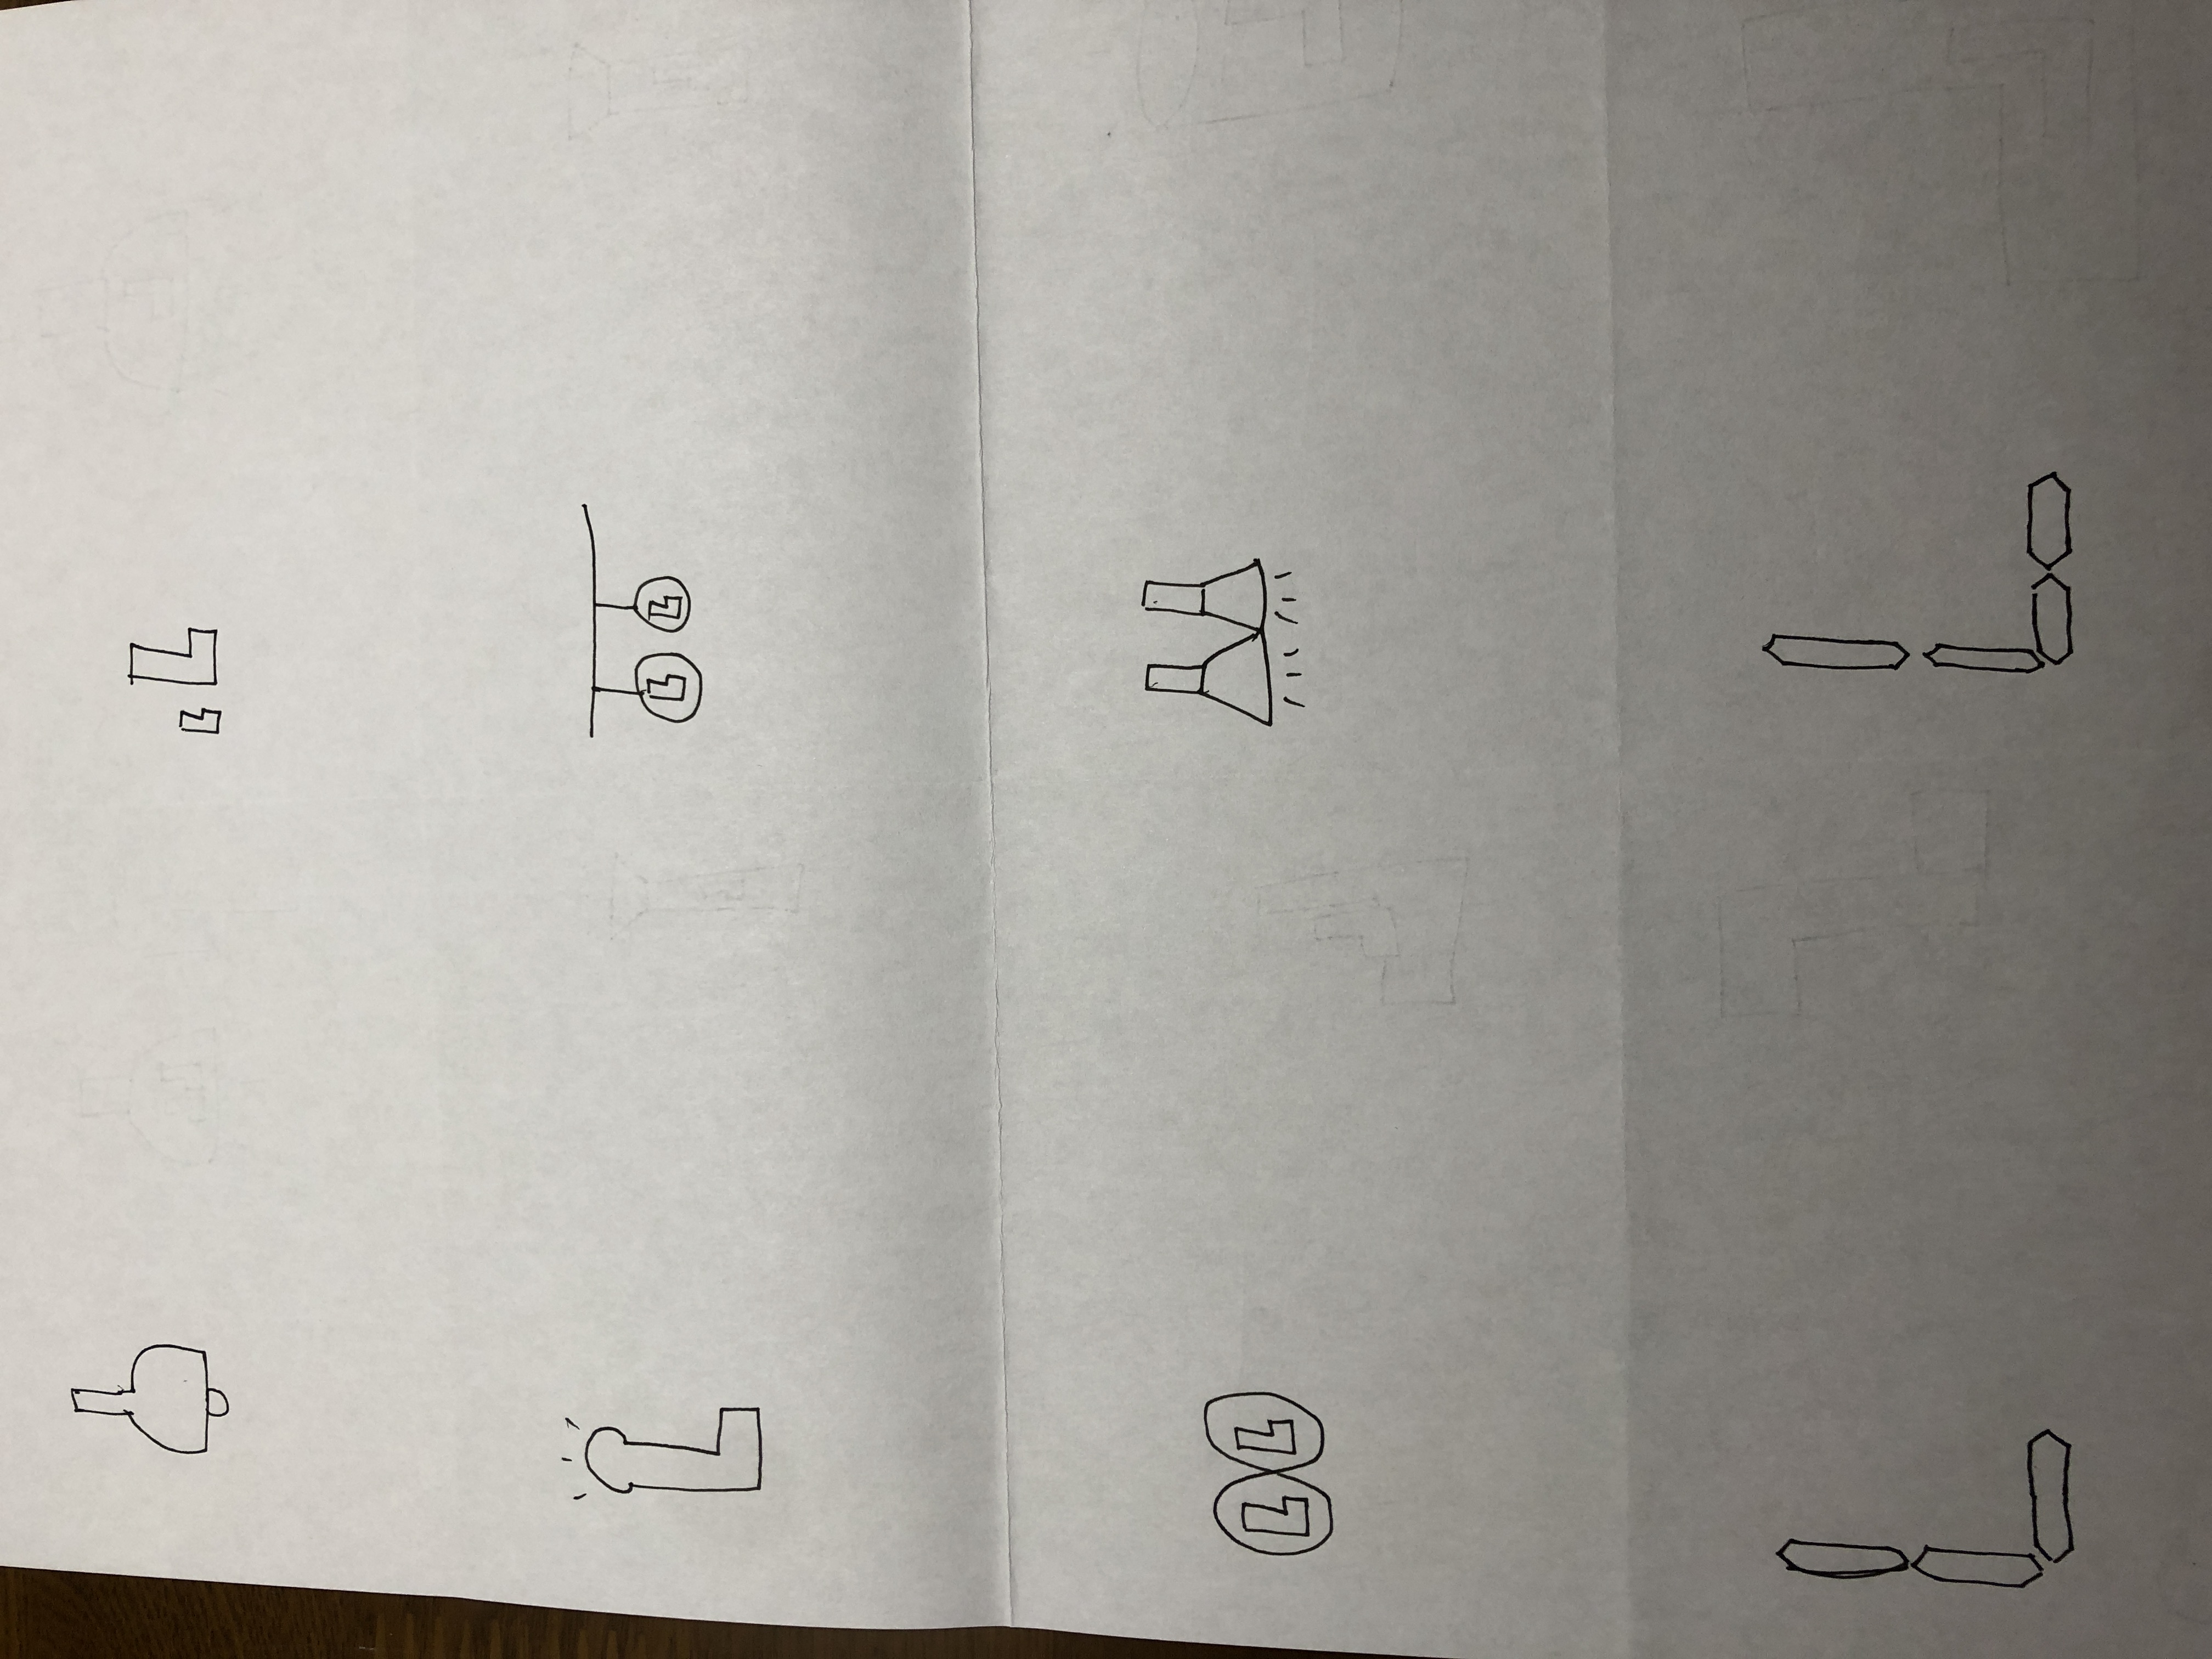 L L
L
L L
L L
L L